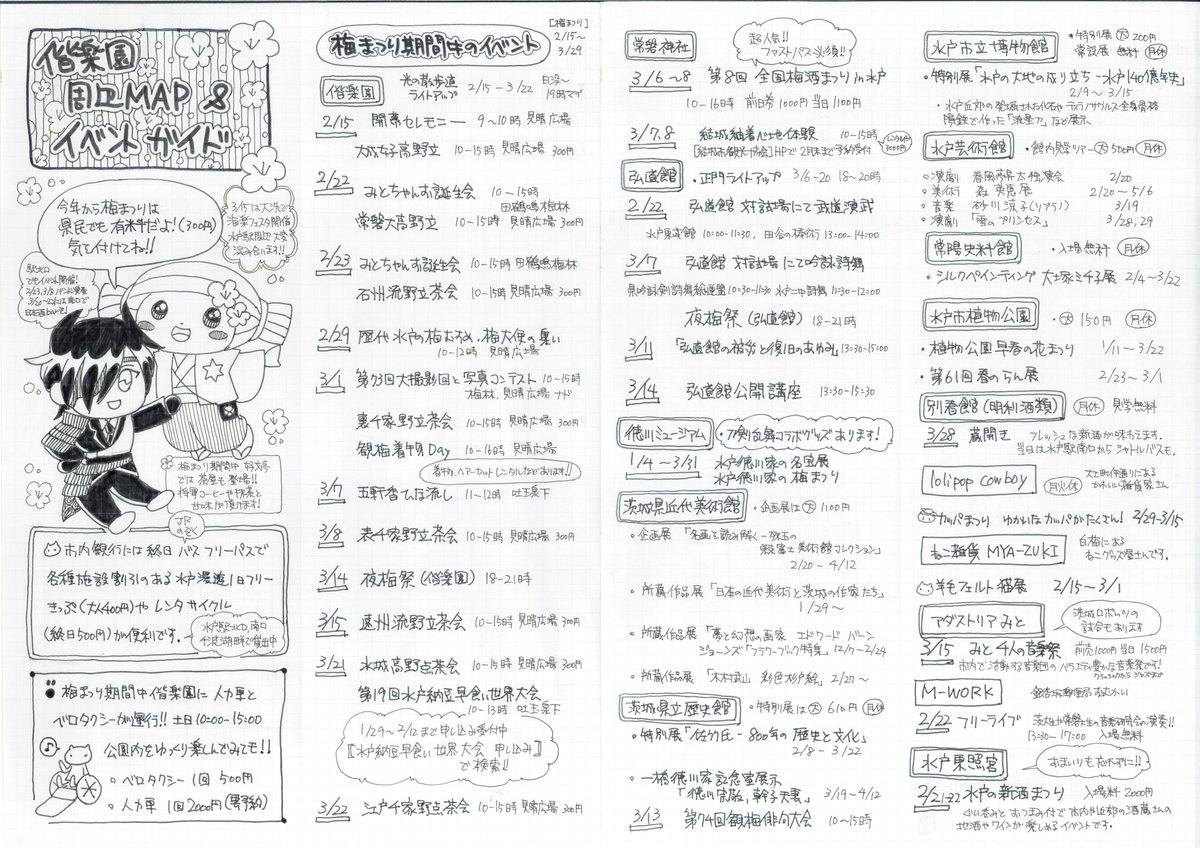 偕楽園
周辺MAP &
イベントガイド
3/15は大洗で
海楽フェスタ開催
水戸駅周辺大変
混み合います!!
今年から梅まつりは
県民でも有料だよ!(300円)
気を付けてね!!
駅北口
でもイベント開催!
梅まつり期間中 好文亭
では茶屋も登場!!
将軍コーヒーや抹茶と
甘味が頂けます!
JR
のぞく
市内銀行には終日バスフリーパスで
各種施設割引のある水戸漫遊1日フリー
きっぷ(大人400円)やレンタサイクル
(終日500円)が便利です。
水戸駅北口、南口
千波湖畔で貸出中
梅まつり期間中偕楽園に人力車と
ベロタクシーが運行!! 土日10:00-15:00
公園内をゆっくり楽しんでみても!!
○ベロタクシー 1回 500円
○人力車 1回2000円(要予約)
梅まつり期間中のイベント
[梅まつり]
2/15~
3/29
偕楽園 光の散歩道 ライトアップ 2/15-3/22 日没~19時マデ
2/15 開幕セレモニー 9~10時 見晴広場
大成女子高野立 10-15時 見晴広場 300円
2/22 みとちゃんお誕生会 10~15時 田鶴鳴梅林
常磐大高野立 10-15時 見晴広場 300円
2/23 みとちゃんお誕生会 10-15時 田鶴鳴梅林
石州流野立茶会 10-15時 見晴広場 300円
2/29 歴代水戸の梅むすめ・梅大使の集い
10-12時 見晴広場
3/1 第73回大撮影会と写真コンテスト 10-15時
梅林、見晴広場 ナド
裏千家野立茶会 10-15時 見晴広場 300円
観梅着物Day 10-16時 見晴広場
着物、ヘアーセット レンタルなどあります!!
3/7 五軒香ひな流し 11-12時 吐玉泉下
3/8 表千家野立茶会 10-15時 見晴広場 300円
3/14 夜梅祭(偕楽園) 18-21時
3/15 遠州流野立茶会 10-15時 見晴広場 300円
3/21 水城高野点茶会 10-15時 見晴広場 300円
第19回水戸納豆早食い世界大会
10-13時 吐玉泉下
1/29~2/12まで申し込み受付中
『水戸納豆早食い世界大会 申し込み』
で検索!!
3/22 江戸千家野点茶会 10-15時 見晴広場 300円
常磐神社
超人気!!
ファストパス必須!!
3/6~8 第8回 全国梅酒まつりin水戸
10-16時 前日券1000円 当日1100円
3/7.8 結城紬着心地体験 10-15時 レンタル付 3000円
[結城市観光協会]HPで2月末まで予約受付
弘道館 ・正門ライトアップ 3/6-20 18~20時
2/22 弘道館 対試場にて武道演武
水戸東武館 10:00-11:30、田谷の棒術 13:00-14:00
3/7 弘道館 対試場にて吟詠詩舞
県吟詠剣詩舞総連盟 10:30-11:30 水戸二中詩舞 11:30-12:00
夜梅祭(弘道館) 18-21時
3/11 「弘道館の被災と復旧のあゆみ」13:30-15:00
3/14 弘道館公開講座 13:30-15:30
徳川ミュージアム ・刀剣乱舞コラボグッズあります!
1/4~3/31 水戸徳川家の名宝展
水戸徳川家の梅まつり
茨城県近代美術館 ・企画展は大1100円
○企画展 「名画を読み解く-珠玉の
東京富士美術館コレクション」
2/20~4/12
○所蔵作品展「日本の近代美術と茨城の作家たち」
1/29~
○所蔵作品展「夢と幻想の画家 エドワード バーン
ジョーンズ「フラワーブック特集」12/7-2/24
○所蔵作品展「木村武山 彩色杉戸絵」2/20~
茨城県立歴史館 ・特別展は大610円 月休
・特別展「佐竹氏-800年の歴史と文化」
2/8-3/22
・一橋徳川家記念室展示
「徳川宗敬、幹子夫妻」 3/19~4/12
3/13 第74回観梅俳句大会 10~15時
水戸市立博物館 ・特別展 大200円
常設展 無料 月休
・特別展「水戸の大地の成り立ち-水戸140億年史」
2/9~3/15
水戸芸術館 ・館内見学ツアー 大500円 月休
○美術 森 英恵展 2/20~5/6
○音楽 砂川涼子(ソプラノ) 3/19
○演劇「雪のプリンセス」 3/28,29
常陽史料館 ・入場無料 月休
・シルクペインティング 大塚ミチ子展 2/4~3/22
水戸市植物公園 ・大150円 月休
・植物公園早春の花まつり 1/11~3/22
・第61回春のらん展 2/23~3/1
別春館(明利酒類) 月休 見学無料
3/28 蔵開き フレッシュな新酒が味わえます。
当日は水戸駅南口からシャトルバスも。
lolipop cowboy 月火休 大工町中通りにある
かわいい雑貨屋さん
カッパまつり ゆかいなカッパがたくさん! 2/29-3/15
ねこ雑貨 MYA-ZUKI 白梅にある
ねこグッズ屋さんです。
羊毛フェルト猫展 2/15~3/1
アダストリアみと 茨城ロボッツの
試合もあります
3/15 みと4人の音楽祭 前売1000円 当日1500円
市内で活動する音楽団のバラエティ豊かな音楽祭です!
クラシックからジャズまで
M-WORK 銀杏坂郵便局お向かい
2/22 フリーライブ 茨大や常磐大生の音楽研究会の演奏!!
13:30-17:00 入場無料
水戸東照宮 おまいりも忘れずに!!
2/21-22 水戸の新酒まつり 入場料2000円
ぐい呑みとおつまみ付で市内や近郊の酒蔵さんの
地酒やワインが楽しめるイベントです。